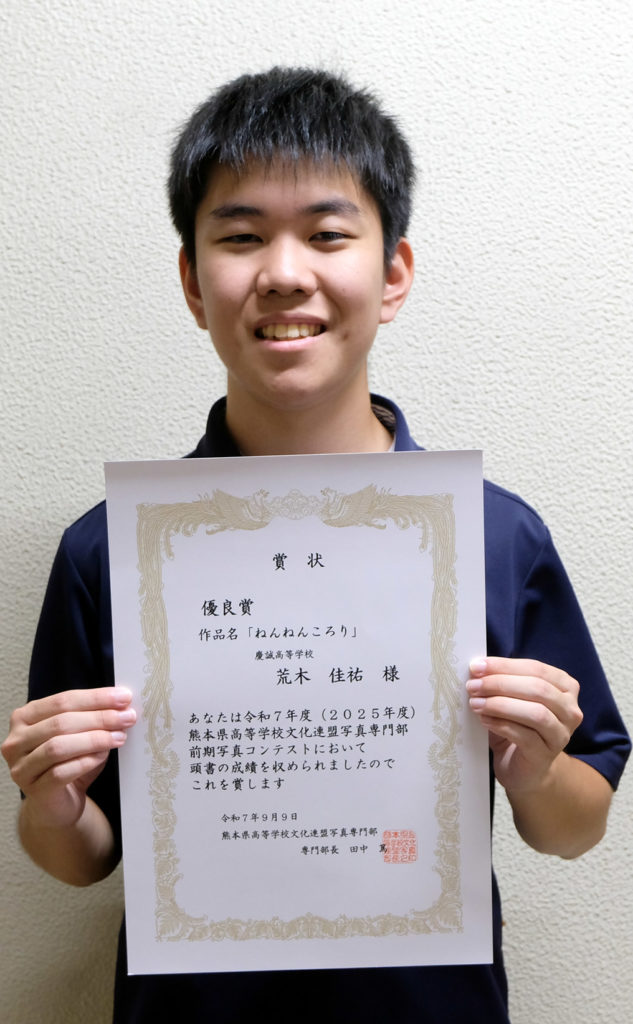 賞状
優良賞
作品名「ねんねんころり」
慶誠高等学校
荒木 佳祐 様
あなたは令和7年度(2025年度)
熊本県高等学校文化連盟写真専門部
前期写真コンテストにおいて
頭書の成績を収められましたので
これを賞します
令和7年9月9日
熊本県高等学校文化連盟写真専門部
専門部長 田中 篤